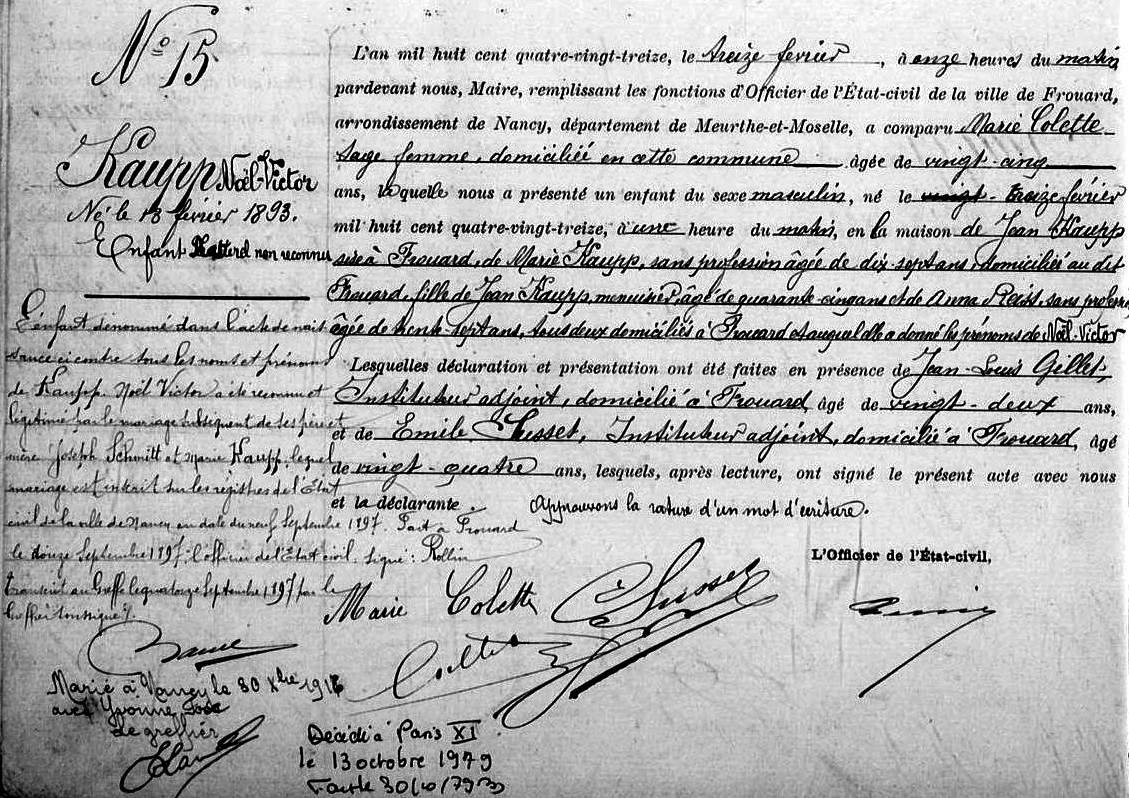 N° 15
Kaupp Noël-Victor
Né le 13 février 1893.
Enfant naturel non reconnu
L'enfant dénommé dans l'acte de nais
sance ci contre sous les noms et prénoms
de Kaupp Noël Victor a été reconnu et
légitimé par le mariage subséquent de ses père et
mère Joseph Schmitt et Marie Kaupp, lequel
mariage est inscrit sur les registres de l'Etat
civil de la ville de Nancy en date du neuf Septembre 1897. Fait à Frouard
le douze Septembre 1897. L'officier de l'Etat civil. Signé: Rollin
au Greffe le quatorze Septembre 1897 par le
Greffier soussigné.
Marié à Nancy le 30 Xbre 1916
avec Yvonne
Le greffier
L'an mil huit cent quatre-vingt-treize, le treize février, à onze heures du matin
pardevant nous, Maire, remplissant les fonctions d'Officier de l'État-civil de la ville de Frouard,
arrondissement de Nancy, département de Meurthe-et-Moselle, a comparu Marie Colette
Sage femme, domiciliée en cette commune âgée de vingt-cinq
ans, laquelle nous a présenté un enfant du sexe masculin, né le vingt-treize février
mil huit cent quatre-vingt-treize, à une heure du matin, en la maison de Jean Kaupp
sise à Frouard, de Marie Kaupp, sans profession âgée de dix-sept ans, domiciliée au dit
Frouard, fille de Jean Kaupp, menuisier, âgé de quarante-cinq ans et de Anna Reiss, sans profession
âgée de trente-sept ans, tous deux domiciliés à Frouard et auquel elle a donné les prénoms de Noël-Victor
Lesquelles déclaration et présentation ont été faites en présence de Jean-Louis Gillet,
Instituteur adjoint, domicilié à Frouard, âgé de vingt-deux ans,
et de Emile Susset, Instituteur adjoint, domicilié à Frouard, âgé
de vingt-quatre ans, lesquels, après lecture, ont signé le présent acte avec nous
et la déclarante. Approuvons la rature d'un mot d'écriture.
L'Officier de l'État-civil,
Marie Colette
Susset
Décédé à Paris XI
le 13 octobre 1979
Fait le 30/10/79